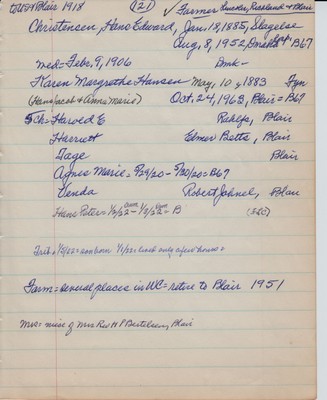 Blair 1918 (2) ✓ Farmer
Christensen, Hans Edward, Jan, 18, 1885, Slagelse
Aug, 8, 1952, B67
Dmk-
Med = Feb, 9, 1906
Karen Margrethe Hansen May, 10, 1883 Fyn
(Hans Jacob & Anne Marie) Oct. 24, 1963, Blair = B67
5ch = Harold E Blair
Harriett Elmer Betts, Blair
Tage Blair
Agnes Marie = 5/29/20 - 5/30/20 = B67
Venda Robert Jahnel, Blair
Hans Peter = 1/5/22 - 1/5/22 = B
1/5/22 = son born lived only a few hours =
Farm = several places in WC = retire to Blair 1951
Mrs = niece of Mrs Rev H P Bertelsen, Blair